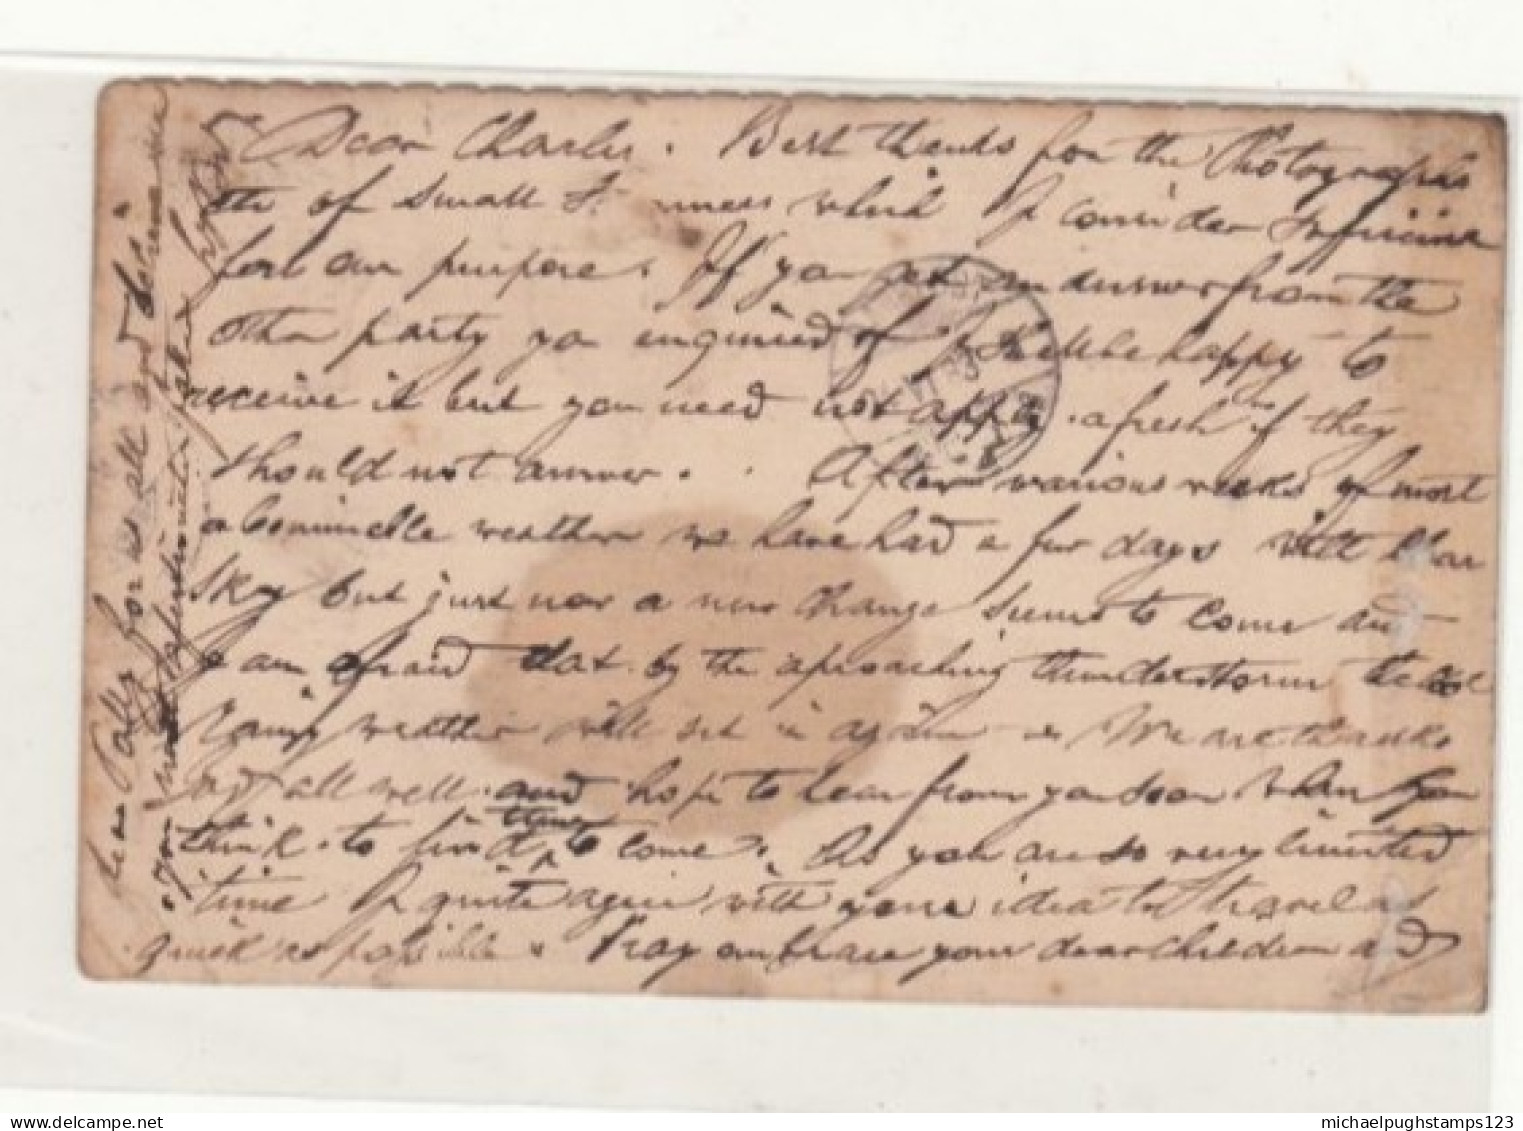 Dear Charles. Best thanks for the Photographs
etc of Small which I consider
for our purpose. If you get an answer from the
other party you enquired of I shall be happy to
receive it but you need not apply afresh if they
should not answer. After various weeks of most
abominable weather we have had a few days with clear
sky but just now a new change seems to come and
I am afraid that by the aproaching thunderstorm the
rainy weather will set in again. We are thanks
God all well and hope to hear from you soon when you
think to find time to come. As you are so very limited
time I quite agree with your idea to travel as
quick as possible. Pray embrace your dear children and
dear Polly for us all and believe me
your most affectionate father
michaelpughstamps123